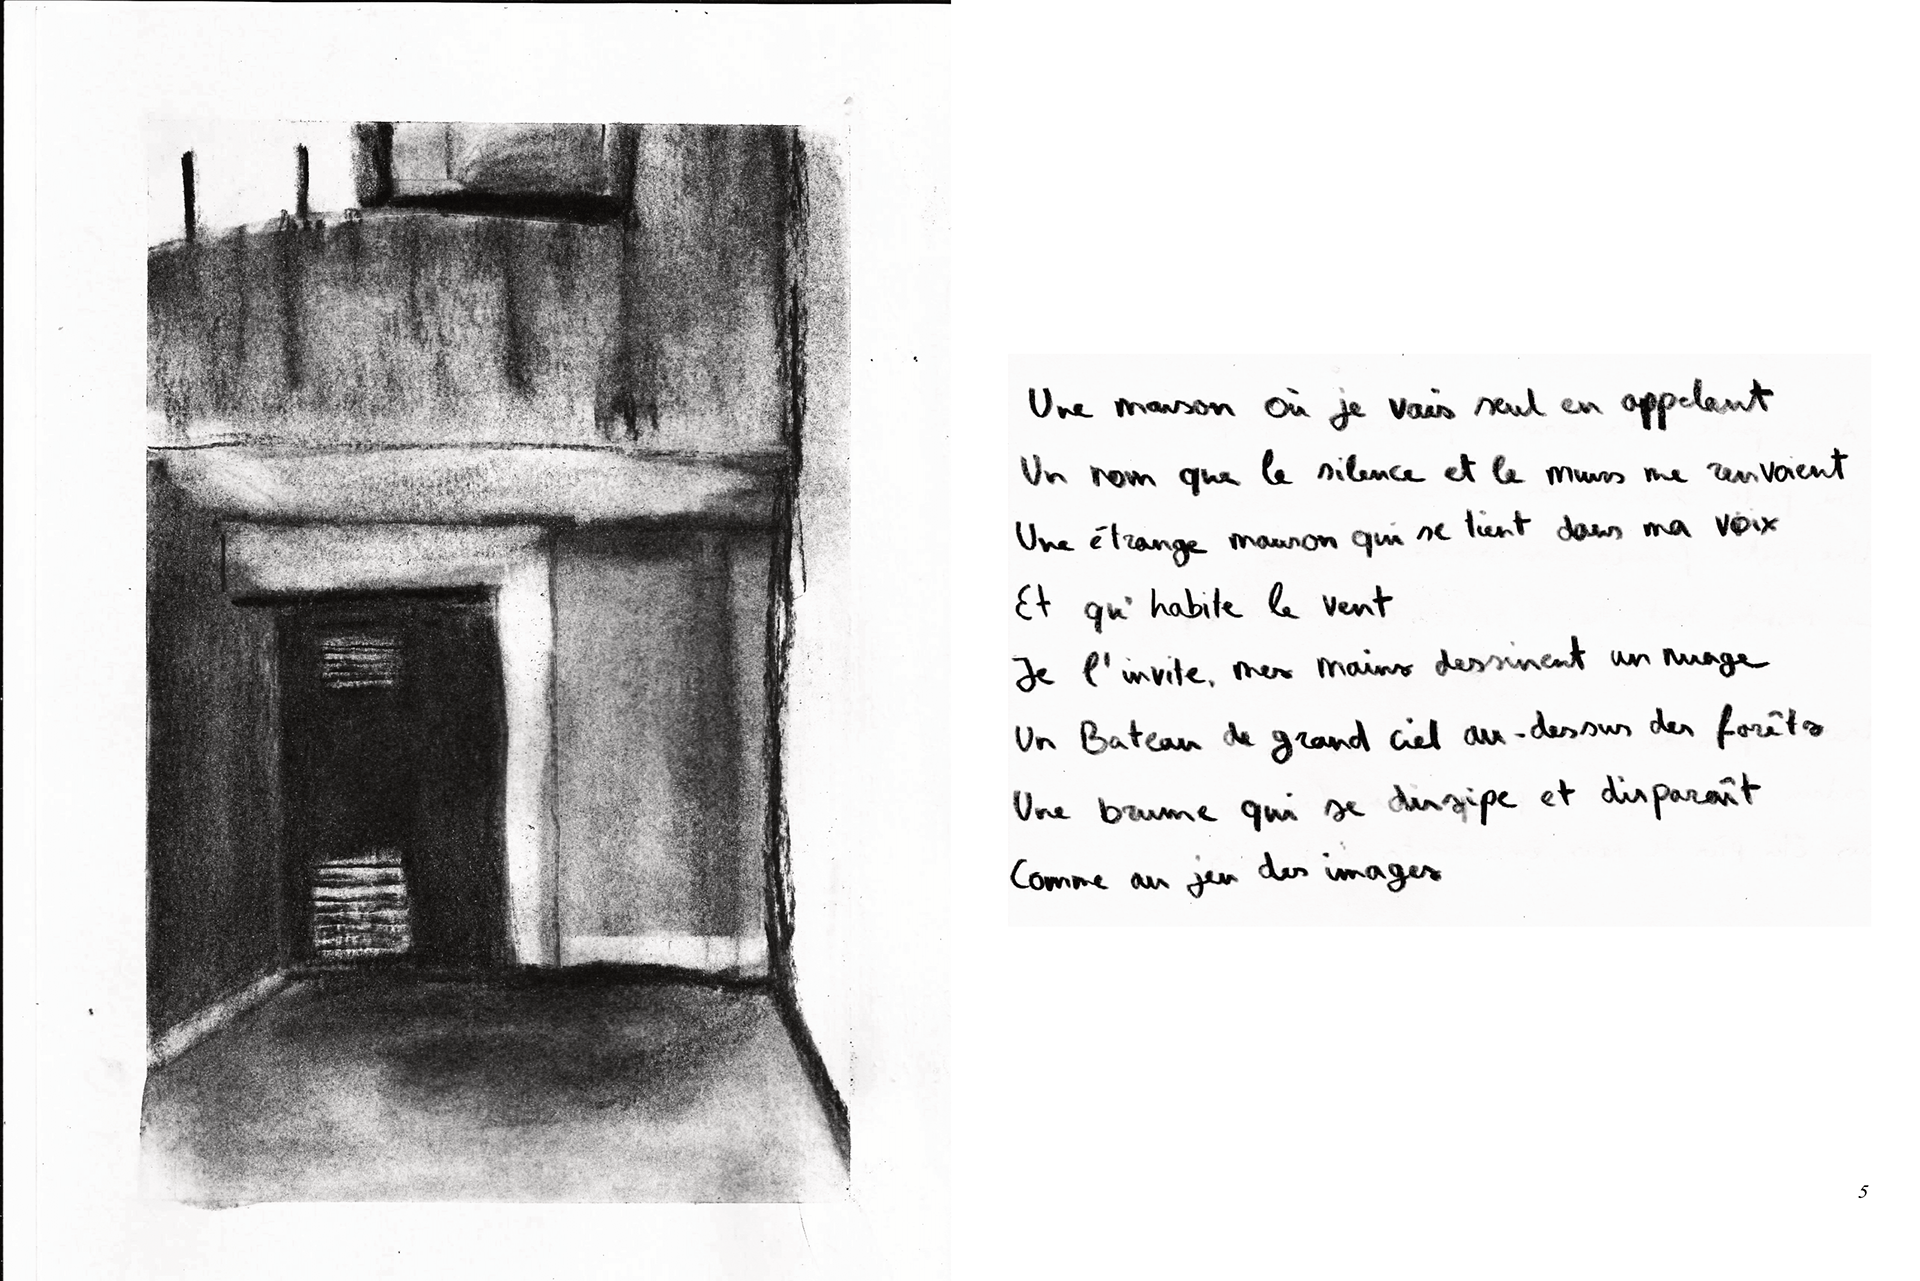 Une maison où je vais seul en appelant
Un nom que le silence et le murs me renvoient
Une étrange maison qui se tient dans ma voix
Et qu'habite le vent
Je l'invite, mes mains dessinent un nuage
Un Bateau de grand ciel au-dessus des forêts
Une brume qui se dissipe et disparaît
Comme au jeu des images
5